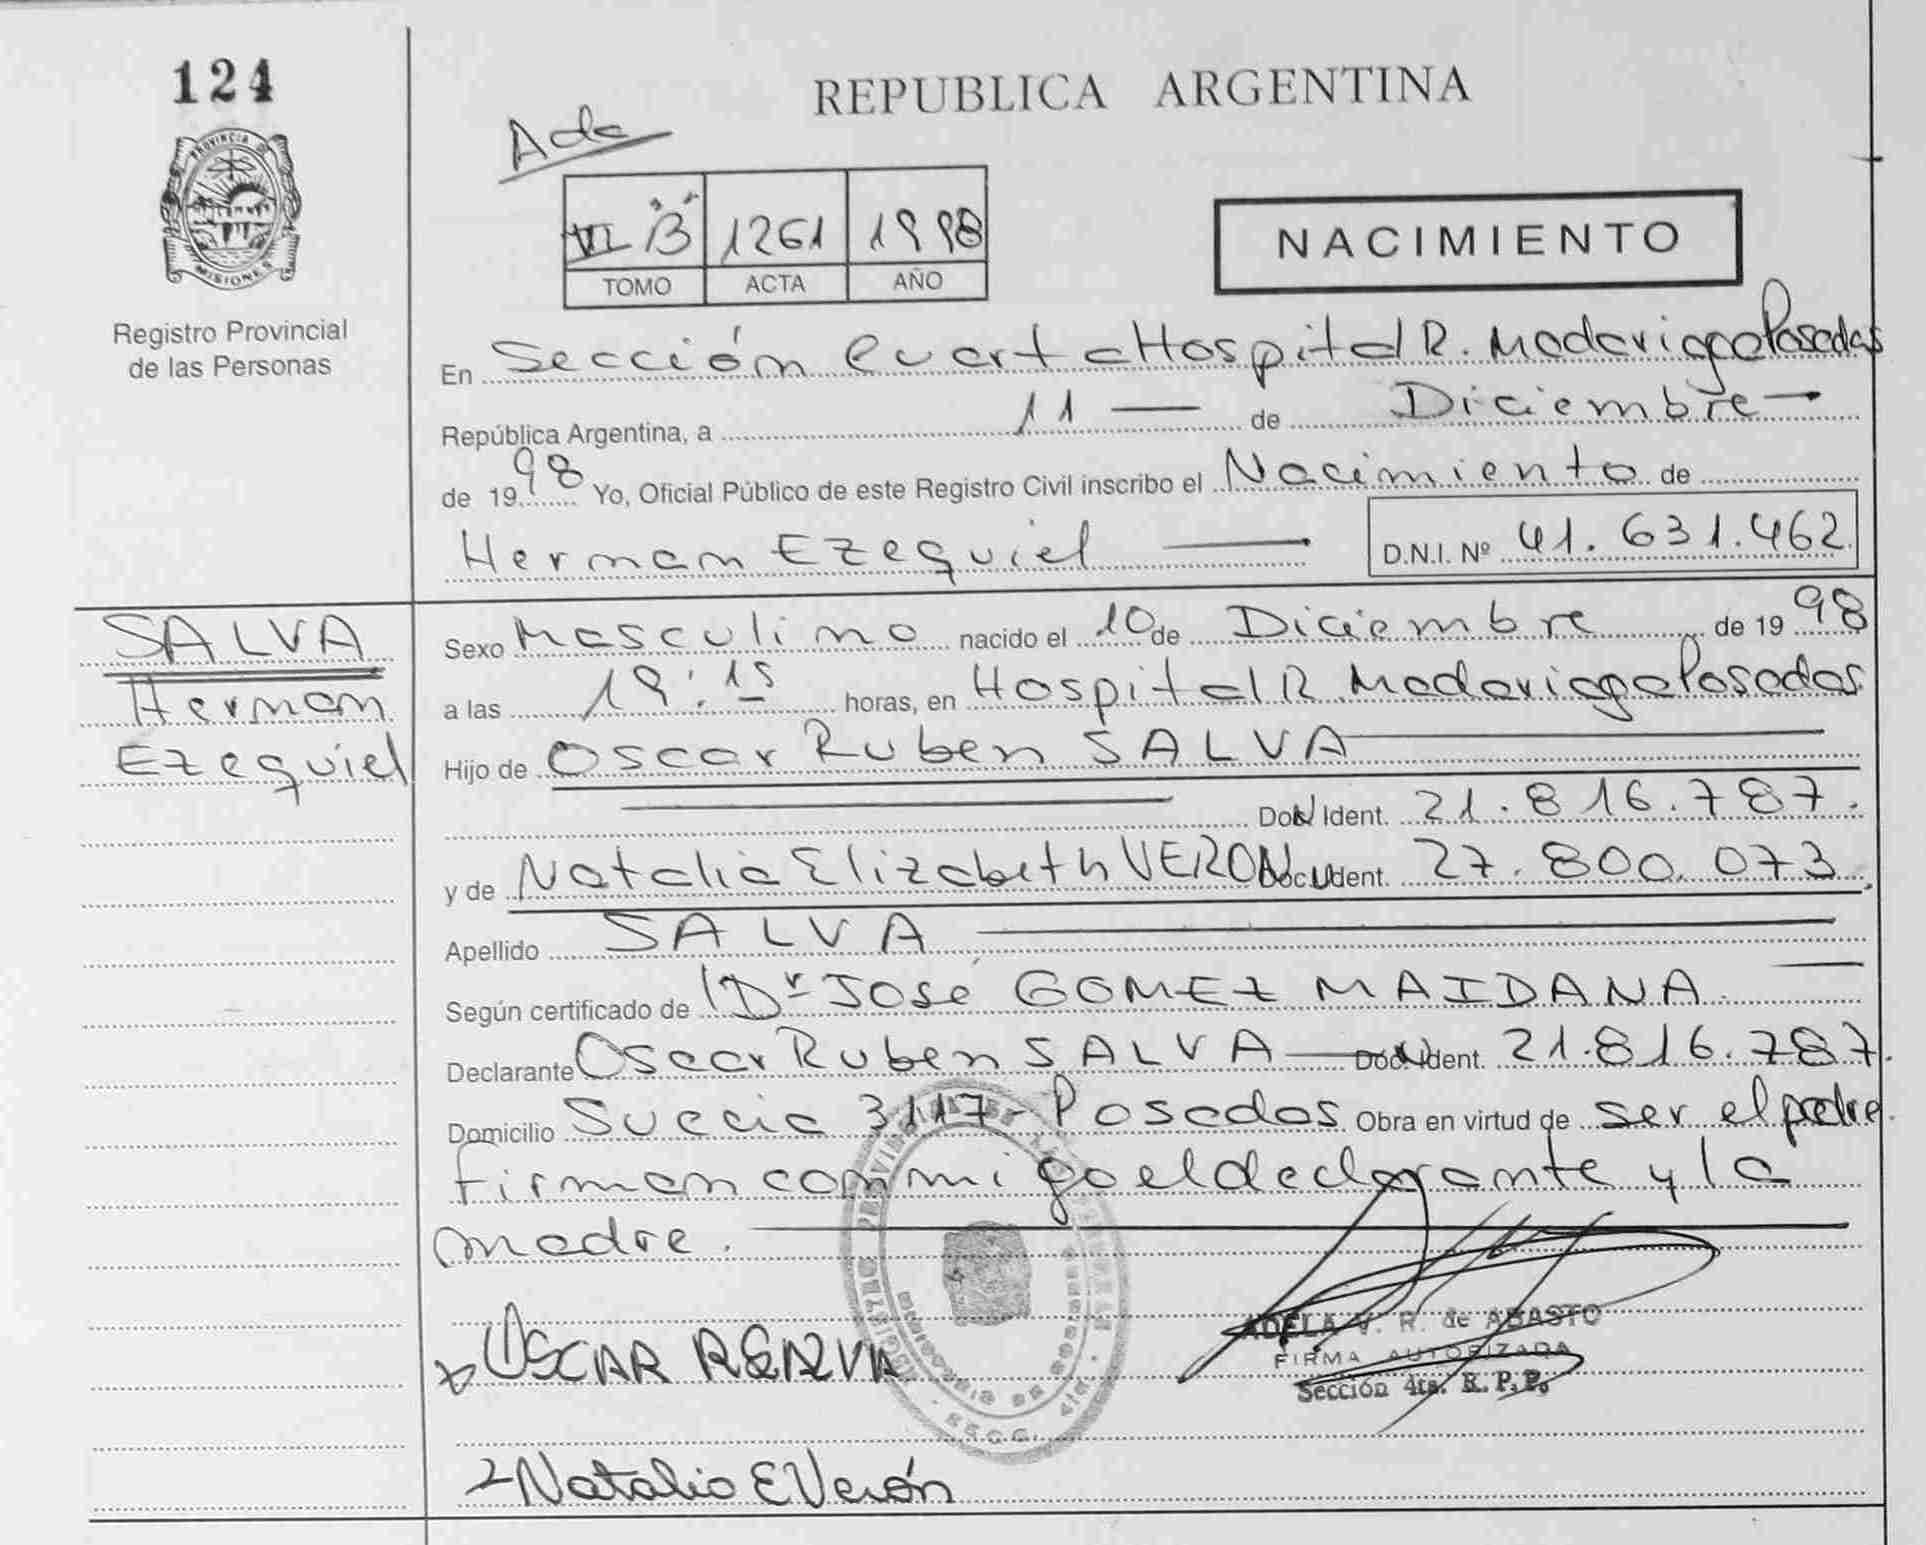 124
REPUBLICA ARGENTINA
Ada
PROVINCIA DE
MISIONES
Registro Provincial
de las Personas
VI "B" 1261 1998
TOMO ACTA AÑO
NACIMIENTO
En Sección Cuarta Hospital R. Madariaga Posadas
República Argentina, a 11 — de Diciembre —
de 1998 Yo, Oficial Público de este Registro Civil inscribo el Nacimiento de
Herman Ezequiel — D.N.I. Nº 41.631.462
SALVA
Herman
Ezequiel
Sexo Masculino nacido el 10 de Diciembre de 1998
a las 19:15 horas, en Hospital R. Madariaga Posadas
Hijo de Oscar Ruben SALVA
Ident. 21.816.787.
y de Natalia Elizabeth VERON Doc. Ident. 27.800.073.
Apellido SALVA
Según certificado de Dr José GOMEZ MAIDANA
Declarante Oscar Ruben SALVA — Ident. 21.816.787.
Domicilio Suecia 3117 - Posadas Obra en virtud de ser el padre
firman conmigo el declarante y la
madre.
OSCAR
ADELA V. R. de ABASTO
FIRMA AUTORIZADA
Sección 4ta. R. P. P.
Natalia E Verón